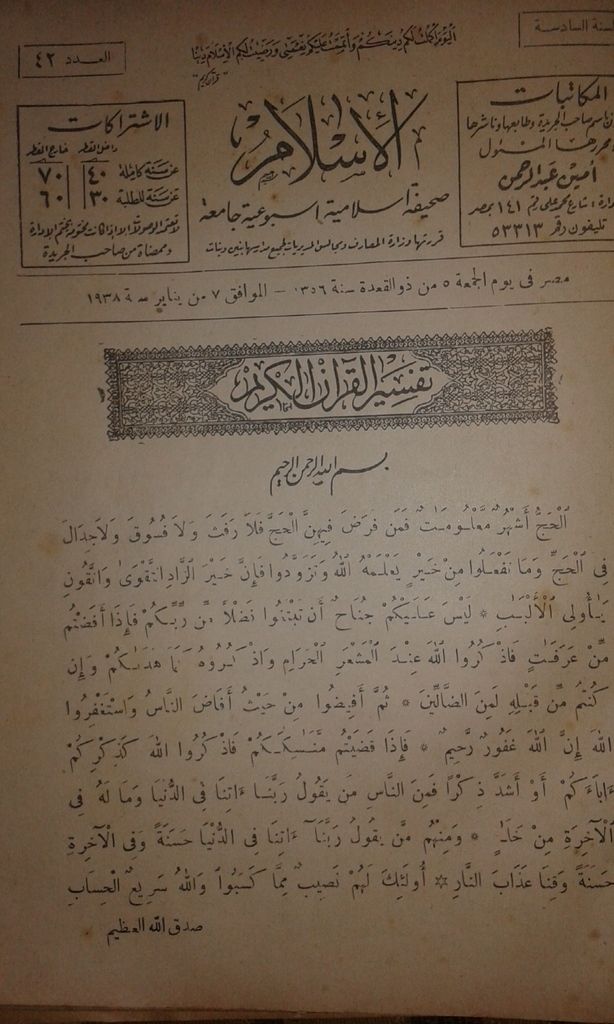 السنة السادسة
اليوم أكملت لكم دينكم وأتممت عليكم نعمتي ورضيت لكم الإسلام دينا
قرآن كريم
العدد ٤٢
المكاتبات
باسم صاحب الجريدة وطابعها وناشرها
ومحررها المسئول
أمين عبد الرحمن
الإدارة: شارع محمد على رقم ١٤١ بمصر
تليفون رقم ٥٣٣١٣
الإسلام
صحيفة اسلامية اسبوعية جامعة
قررتها وزارة المعارف ومجالس المديريات لجميع مدارسها بنين وبنات
الاشتراكات
داخل القطر خارج القطر
عن سنة كاملة ٤٠ ٧٠
عن سنة للطلبة ٣٠ ٦٠
لا تعتمد الوصولات الا اذا كانت مختومة بختم الادارة
وممضاة من صاحب الجريدة
مصر فى يوم الجمعة ٥ من ذو القعدة سنة ١٣٥٦ — الموافق ٧ من يناير سنة ١٩٣٨
تفسير القرآن الكريم
بسم الله الرحمن الرحيم
ٱلْحَجُّ أَشْهُرٌ مَّعْلُومَٰتٌ فَمَن فَرَضَ فِيهِنَّ ٱلْحَجَّ فَلَا رَفَثَ وَلَا فُسُوقَ وَلَا جِدَالَ
فِى ٱلْحَجِّ وَمَا تَفْعَلُوا مِنْ خَيْرٍ يَعْلَمْهُ ٱللَّهُ وَتَزَوَّدُوا فَإِنَّ خَيْرَ ٱلزَّادِ ٱلتَّقْوَىٰ وَٱتَّقُونِ
يَٰٓأُولِى ٱلْأَلْبَٰبِ * لَيْسَ عَلَيْكُمْ جُنَاحٌ أَن تَبْتَغُوا فَضْلًا مِّن رَّبِّكُمْ فَإِذَا أَفَضْتُم
مِّنْ عَرَفَٰتٍ فَٱذْكُرُوا ٱللَّهَ عِندَ ٱلْمَشْعَرِ ٱلْحَرَامِ وَٱذْكُرُوهُ كَمَا هَدَىٰكُمْ وَإِن
كُنتُم مِّن قَبْلِهِ لَمِنَ ٱلضَّآلِّينَ * ثُمَّ أَفِيضُوا مِنْ حَيْثُ أَفَاضَ ٱلنَّاسُ وَٱسْتَغْفِرُوا
ٱللَّهَ إِنَّ ٱللَّهَ غَفُورٌ رَّحِيمٌ * فَإِذَا قَضَيْتُم مَّنَٰسِكَكُمْ فَٱذْكُرُوا ٱللَّهَ كَذِكْرِكُمْ
ءَابَآءَكُمْ أَوْ أَشَدَّ ذِكْرًا فَمِنَ ٱلنَّاسِ مَن يَقُولُ رَبَّنَآ ءَاتِنَا فِى ٱلدُّنْيَا وَمَا لَهُ فِى
ٱلْآخِرَةِ مِنْ خَلَٰقٍ * وَمِنْهُم مَّن يَقُولُ رَبَّنَآ ءَاتِنَا فِى ٱلدُّنْيَا حَسَنَةً وَفِى ٱلْآخِرَةِ
حَسَنَةً وَقِنَا عَذَابَ ٱلنَّارِ * أُولَٰٓئِكَ لَهُمْ نَصِيبٌ مِّمَّا كَسَبُوا وَٱللَّهُ سَرِيعُ ٱلْحِسَابِ
صدق الله العظيم